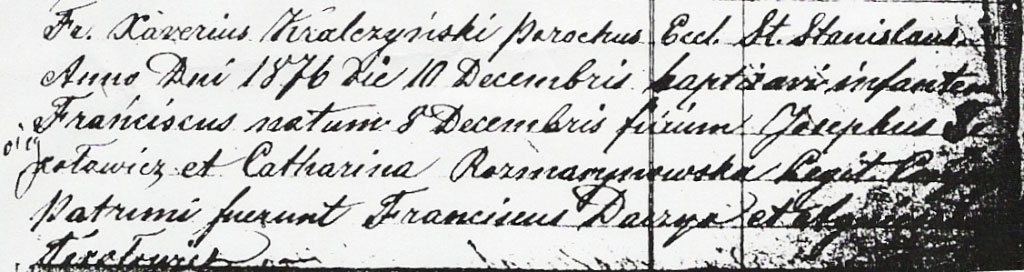 Fr. Xaverius Kralczyński Parochus Eccl. St. Stanislaus
Anno Dni 1876 Die 10 Decembris baptizavi infantem
Franciscus natum 8 Decembris filium Josephus
et Catharina Rozmarynowska Legit.
Patrini fuerunt Franciscus et